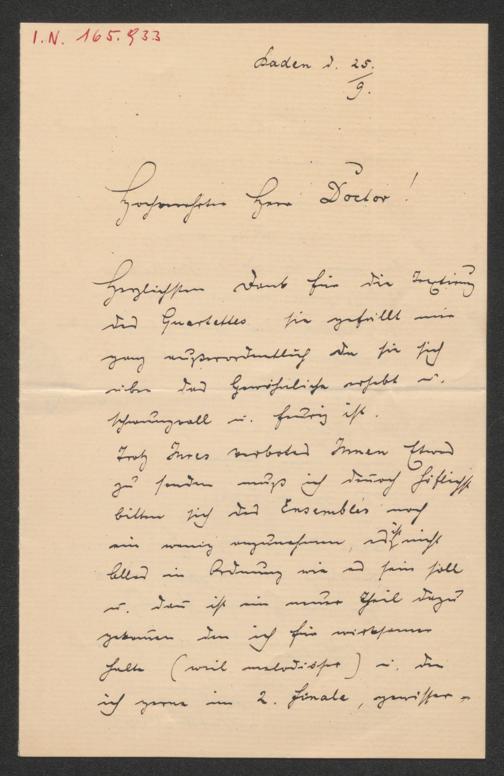 I.N. 165.933
Baden d. 25.
9.
Hochverehrter Herr Doctor!
Herzlichsten Dank für die Textirung
des Quartettes sie gefällt mir
ganz außerordentlich da sie sich
über das Gewöhnliche erhebt u.
schwungvoll u. feurig ist.
Trotz Ihres verbotes Ihnen Etwas
zu senden muß ich denoch höflichst
bitten sich des Ensembles noch
ein wenig anzunehmen, es ist nicht
Alles in Ordnung wie es sein soll
u. dan ist ein neuer Theil dazu
gekomen den ich für wirksamer
halte (weil melodisser) u. den
ich gerne im 2. Finale, gewisser-